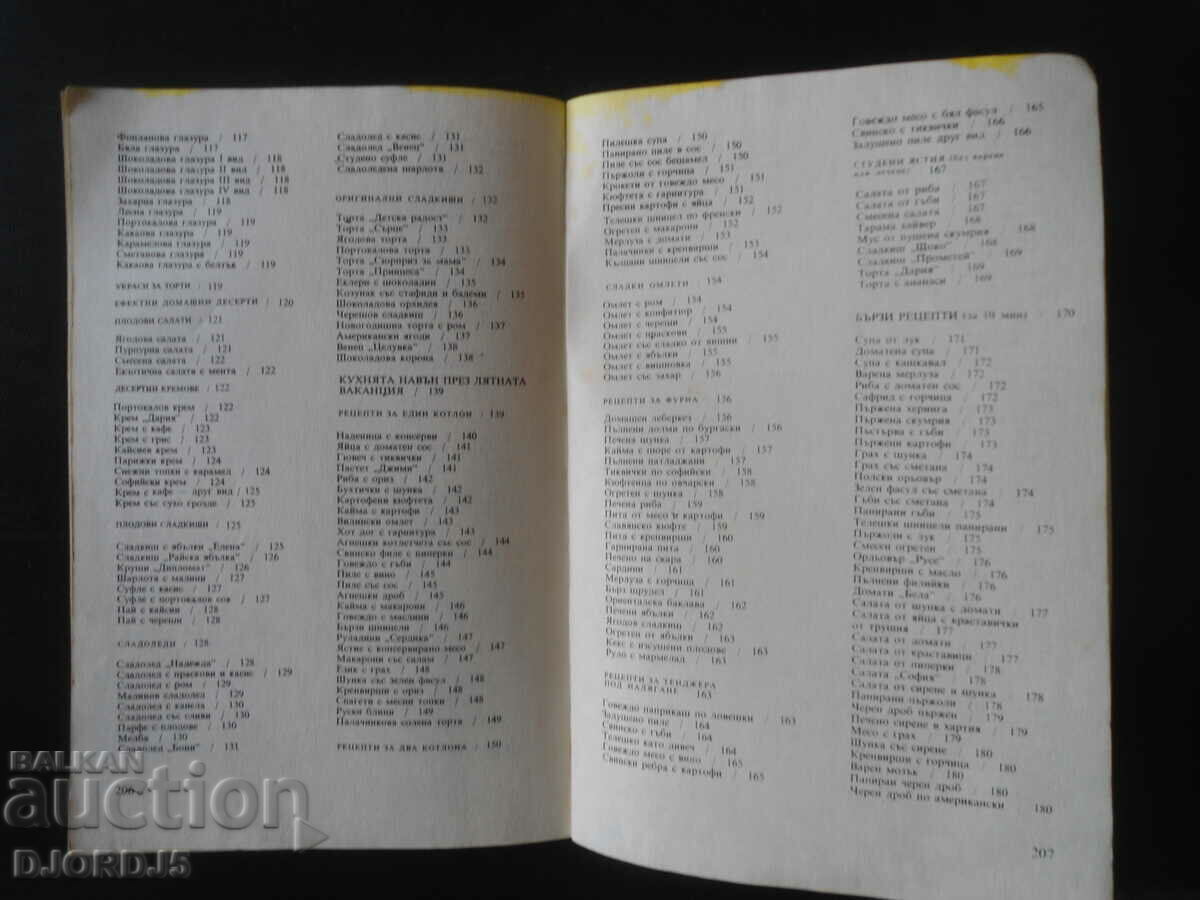 Фонданова глазура / 117
Бяла глазура / 117
Шоколадова глазура I вид / 118
Шоколадова глазура II вид / 118
Шоколадова глазура III вид / 118
Шоколадова глазура IV вид / 118
Захарна глазура / 118
Лесна глазура / 119
Портокалова глазура / 119
Какаова глазура / 119
Карамелова глазура / 119
Сметанова глазура / 119
Какаова глазура с белтък / 119
УКРАСИ ЗА ТОРТИ / 119
ЕФЕКТНИ ДОМАШНИ ДЕСЕРТИ / 120
ПЛОДОВИ САЛАТИ / 121
Ягодова салата / 121
Пурпурна салата / 121
Смесена салата / 122
Екзотична салата с мента / 122
ДЕСЕРТНИ КРЕМОВЕ / 122
Портокалов крем / 122
Крем „Дария“ / 122
Крем с кафе / 123
Крем с грис / 123
Кайсиев крем / 123
Парижки крем / 124
Снежни топки с карамел / 124
Софийски крем / 124
Крем с кафе — друг вид / 125
Крем със сухо грозде / 125
ПЛОДОВИ СЛАДКИШИ / 125
Сладкиш с ябълки „Елена“ / 125
Сладкиш „Райска ябълка“ / 126
Круши „Дипломат“ / 126
Шарлота с малини / 127
Суфле с касис / 127
Суфле с портокалов сок / 127
Пай с кайсии / 128
Пай с череши / 128
СЛАДОЛЕДИ / 128
Сладолед „Надежда“ / 128
Сладолед с праскови и касис / 129
Сладолед с ром / 129
Малинов сладолед / 129
Сладолед с канела / 130
Сладолед със сливи / 130
Парфе с плодове / 130
Мелба / 130
Сладолед „Бони“ / 131
206
Сладолед с касис / 131
Сладолед „Венец“ / 131
Студено суфле / 131
Сладоледена шарлота / 132
ОРИГИНАЛНИ СЛАДКИШИ / 132
Торта „Детска радост“ / 132
Торта „Сърце“ / 133
Ягодова торта / 133
Портокалова торта / 133
Торта „Сюрприз за мама“ / 134
Торта „Принцеса“ / 134
Еклери с шоколадин / 135
Козунак със стафиди и бадеми / 135
Шоколадова орхидея / 136
Черешов сладкиш / 136
Новогодишна торта с ром / 137
Американски ягоди / 137
Венец „Целувка“ / 138
Шоколадова корона / 138
КУХНЯТА НАВЪН ПРЕЗ ЛЯТНАТА
ВАКАНЦИЯ / 139
РЕЦЕПТИ ЗА ЕДИН КОТЛОН / 139
Наденица с консерви / 140
Яйца с доматен сос / 141
Гювеч с тиквички / 141
Пастет „Джими“ / 141
Риба с ориз / 142
Бухтички с шунка / 142
Картофени кюфтета / 142
Кайма с картофи / 143
Вилински омлет / 143
Хот дог с гарнитура / 143
Агнешки котлетчета със сос / 144
Свинско филе с пиперки / 144
Говеждо с гъби / 144
Пиле с вино / 145
Пиле със сос / 145
Агнешки дроб / 145
Кайма с макарони / 146
Говеждо с маслини / 146
Бързи шницели / 146
Руладини „Сердика“ / 147
Ястие с консервирано месо / 147
Макарони със салам / 147
Език с грах / 148
Шунка със зелен фасул / 148
Кренвирши с ориз / 148
Спагети с месни топки / 148
Руски блини / 149
Палачинкова солена торта / 149
РЕЦЕПТИ ЗА ДВА КОТЛОНА / 150
Пилешка супа / 150
Панирано пиле в сос / 150
Пиле със сос бешамел / 150
Пържоли с горчица / 151
Крокети от говеждо месо / 151
Кюфтета с гарнитура / 151
Пресни картофи с яйца / 152
Телешки шницел по френски / 152
Огретен с макарони / 152
Мерлуза с домати / 153
Палачинки с кренвирши / 153
Къщани шницели със сос / 154
СЛАДКИ ОМЛЕТИ / 154
Омлет с ром / 154
Омлет с конфитюр / 154
Омлет с череши / 154
Омлет с праскови / 155
Омлет със сладко от вишни / 155
Омлет с ябълки / 155
Омлет с вишновка / 155
Омлет със захар / 156
РЕЦЕПТИ ЗА ФУРНА / 156
Домашен леберкез / 156
Пълнени долми по бургаски / 156
Печена шунка / 157
Кайма с пюре от картофи / 157
Пълнени патладжани / 157
Тиквички по софийски / 158
Кюфтенца по овчарски / 158
Огретен с шунка / 158
Печена риба / 159
Пита от месо и картофи / 159
Славянско кюфте / 159
Пита с кренвирши / 160
Гарнирана пита / 160
Печено на скара / 160
Сардини / 161
Мерлуза с горчица / 161
Бърз щрудел / 161
Ориенталска баклава / 162
Печени ябълки / 162
Ягодов сладкиш / 162
Огретен от ябълки / 163
Кекс с изсушени плодове / 163
Руло с мармелад / 163
РЕЦЕПТИ ЗА ТЕНДЖЕРА
ПОД НАЛЯГАНЕ / 163
Говеждо наприкаш по ловешки / 163
Задушено пиле / 164
Свинско с гъби / 164
Телешко като дивеч / 164
Говеждо месо с вино / 165
Свински ребра с картофи / 165
Говеждо месо с бял фасул / 165
Свинско с тиквички / 166
Задушено пиле друг вид / 166
СТУДЕНИ ЯСТИЯ (без варене
или печене) / 167
Салата от риба / 167
Салата от гъби / 167
Смесена салата / 167
Тарама хайвер / 168
Мус от пушена скумрия / 168
Сладкиш „Щоко“ / 168
Сладкиш „Прометей“ / 169
Торта „Дария“ / 169
Торта с ананаси / 169
БЪРЗИ РЕЦЕПТИ (за 10 мин) / 170
Супа от лук / 171
Доматена супа / 171
Супа с кашкавал / 172
Варена мерлуза / 172
Риба с доматен сос / 172
Сафрид с горчица / 172
Пържена херинга / 173
Пържена скумрия / 173
Пъстърва с гъби / 173
Пържени картофи / 173
Грах с шунка / 174
Грах със сметана / 174
Полски орьовър / 174
Зелен фасул със сметана / 174
Гъби със сметана / 175
Панирани гъби / 175
Телешки шницели панирани / 175
Пържоли с лук / 175
Смесен огретен / 176
Ордьовър „Русе“ / 176
Кренвирши с масло / 176
Пълнени филийки / 176
Домати „Бела“ / 176
Салата от шунка с домати / 177
Салата от яйца с краставички
от трушия / 177
Салата от домати / 177
Салата от краставици / 177
Салата от пиперки / 178
Салата „София“ / 178
Салата от сирене и шунка / 178
Панирани пържоли / 178
Черен дроб пържен / 178
Печено сирене в хартия / 179
Месо с грах / 179
Шунка със сирене / 180
Кренвирши с горчица / 180
Варен мозък / 180
Паниран черен дроб / 180
Черен дроб по американски / 180
207
BALKAN
auction
DJORDJ5